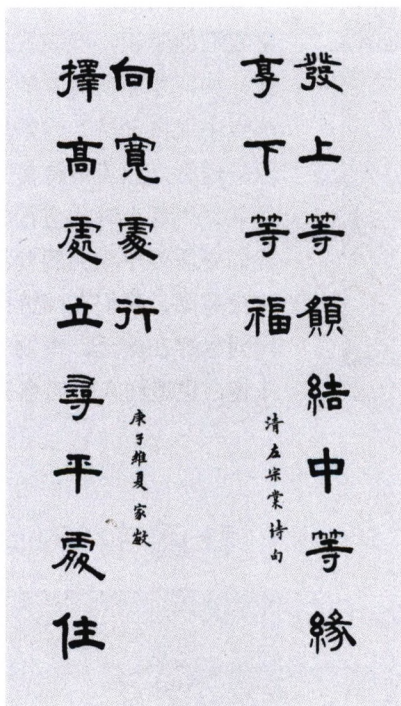 發上等願結中等緣
享下等福
清左宗棠詩句
擇高處立尋平處住
向寬處行
庚子維夏 家